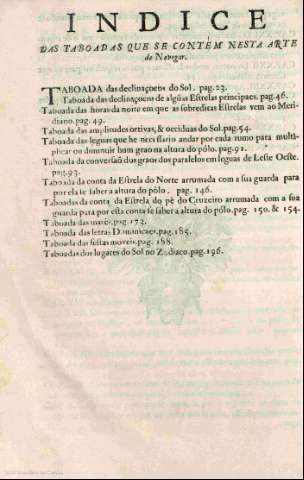 INDICE
DAS TABOADAS QUE SE CONTÉM NESTA ARTE
de Navegar.
TABOADA das declinaçoens do Sol. pag. 23.
Taboada das declinaçoens de algũas Estrelas principaes. pag.46.
Taboada das horas da noite em que as sobreditas Estrelas vem ao Meri-
diano. pag. 49.
Taboada das amplitudes ortivas, & occiduas do Sol.pag.54.
Taboada das leguas que he necessario andar por cada rumo para multi-
plicar ou diminuir hum grao na altura do pólo. pag.91.
Taboada da conversaõ dos graos dos paralelos em leguas de Leste Oeste.
pag.93.
Taboada da conta da Estrela do Norte arrumada com a sua guarda para
por ela se saber a altura do pólo, pag. 146.
Taboadas da conta da Estrela do pè do Cruzeiro arrumada com a sua
guarda para por esta conta se saber a altura do pólo. pag. 150. & 154.
Taboada das marès.pag.172.
Taboada das letras Dominicaes.pag.185.
Taboada das festas moveis.pag.188.
Taboadas dos lugares do Sol no Zodiaco.pag.196.